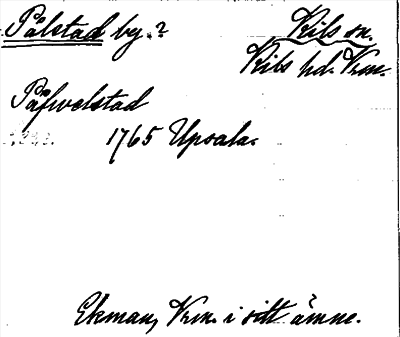 Pålstad by.?
Kils sn.
Kils hd. Vrm.
Påfvelstad
1765 Upsala.
Ekman, Vrm. i sitt ämne.